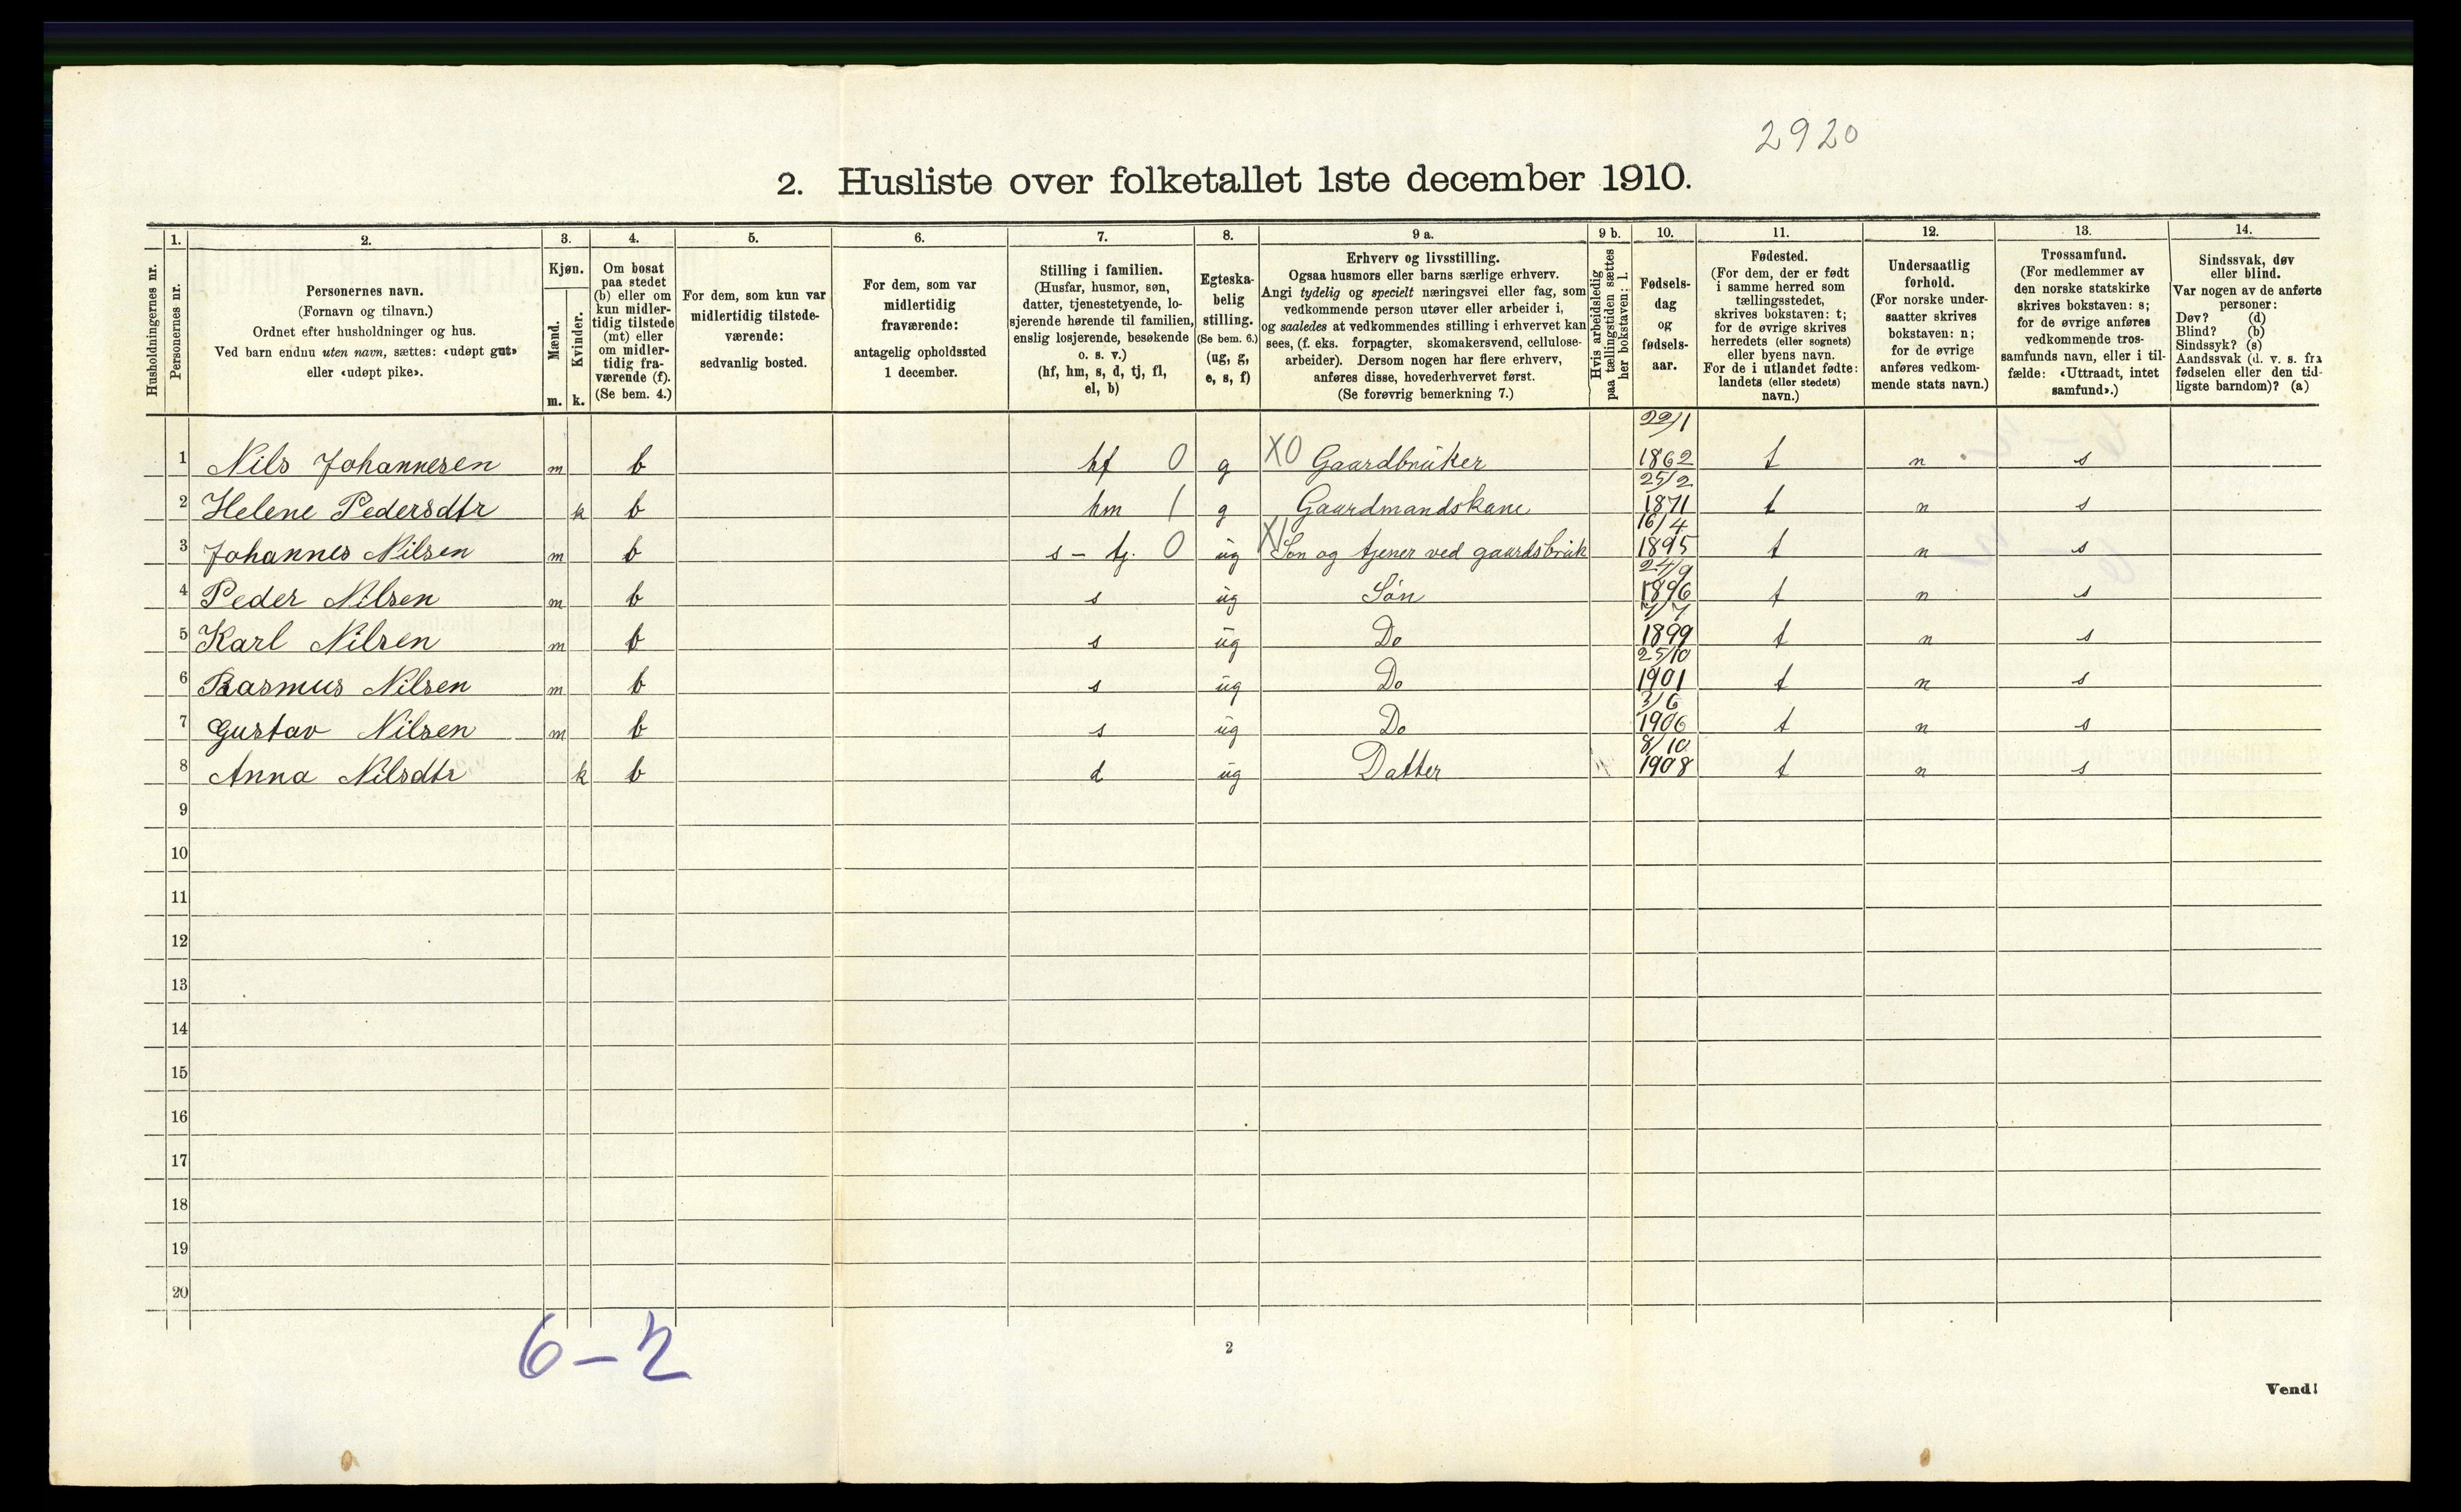 2920
2. Husliste over folketallet 1ste december 1910.
Husholdningernes nr.
1.
Personernes nr.
2.
Personernes navn.
(Fornavn og tilnavn.)
Ordnet efter husholdninger og hus.
Ved barn endnu uten navn, sættes: «udøpt gut»
eller «udøpt pike».
3.
Kjøn.
Mænd.
m.
Kvinder.
k.
4.
Om bosat
paa stedet
(b) eller om
kun midler-
tidig tilstede
(mt) eller
om midler-
tidig fra-
værende (f).
(Se bem. 4.)
5.
For dem, som kun var
midlertidig tilstede-
værende:
sedvanlig bosted.
6.
For dem, som var
midlertidig
fraværende:
antagelig opholdssted
1 december.
7.
Stilling i familien.
(Husfar, husmor, søn,
datter, tjenestetyende, lo-
sjerende hørende til familien,
enslig losjerende, besøkende
o. s. v.)
(hf, hm, s, d, tj, fl,
el, b)
8.
Egteska-
belig
stilling.
(Se bem. 6.)
(ug, g,
e, s, f)
9 a.
Erhverv og livsstilling.
Ogsaa husmors eller barns særlige erhverv.
Angi tydelig og specielt næringsvei eller fag, som
vedkommende person utøver eller arbeider i,
og saaledes at vedkommendes stilling i erhvervet kan
sees, (f. eks. forpagter, skomakersvend, cellulose-
arbeider). Dersom nogen har flere erhverv,
anføres disse, hovederhvervet først.
(Se forøvrig bemerkning 7.)
9 b.
Hvis arbeidsledig
paa tællingstiden sættes
her bokstaven: l.
10.
Fødsels-
dag
og
fødsels-
aar.
11.
Fødested.
(For dem, der er født
i samme herred som
tællingsstedet,
skrives bokstaven: t;
for de øvrige skrives
herredets (eller sognets)
eller byens navn.
For de i utlandet fødte:
landets (eller stedets)
navn.)
12.
Undersaatlig
forhold.
(For norske under-
saatter skrives
bokstaven: n;
for de øvrige
anføres vedkom-
mende stats navn.)
13.
Trossamfund.
(For medlemmer av
den norske statskirke
skrives bokstaven: s;
for de øvrige anføres
vedkommende tros-
samfunds navn, eller i til-
fælde: «Uttraadt, intet
samfund».)
14.
Sindssvak, døv
eller blind.
Var nogen av de anførte
personer:
Døv? (d)
Blind? (b)
Sindssyk? (s)
Aandssvak (d. v. s. fra
fødselen eller den tid-
ligste barndom)? (a)
1 Nils Johannesen m b hf 0 g X0 Gaardbruker 22/1 1862 t n s
2 Helene Pedersdtr k b hm 1 g Gaardmandskone 25/2 1871 t n s
3 Johannes Nilsen m b s - tj. 0 ug X1 Søn og tjener ved gaardsbruk 16/4 1895 t n s
4 Peder Nilsen m b s ug Søn 24/9 1896 t n s
5 Karl Nilsen m b s ug Do 1899 t n s
6 Rasmus Nilsen m b s ug Do 25/10 1901 t n s
7 Gustav Nilsen m b s ug Do 3/6 1906 t n s
8 Anna Nilsdtr k b d ug Datter 8/10 1908 t n s
9
10
11
12
13
14
15
16
17
18
19
20
6-2
2
Vend!